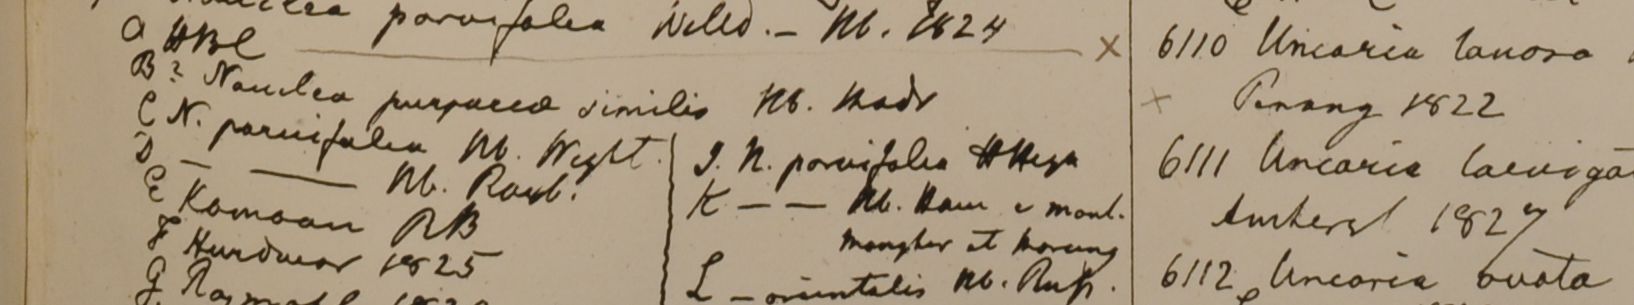 parvifolia Willd. – Hb. 1824
a HBC
B? Nauclea purpureae similis Hb. Madr
C N. parvifolia Hb. Wight
D — —— Hb. Roxb.
E Kamaon RB
F Hurdwar 1825
G
I. N. parvifolia HHeyn
K — — Hb. Ham e mont.
et Morung
L – orientalis Hb. Russ.
6110 Uncaria lanosa
x Penang 1822
6111 Uncaria laeviga
Amherst 1827
6112 Uncaria ovata